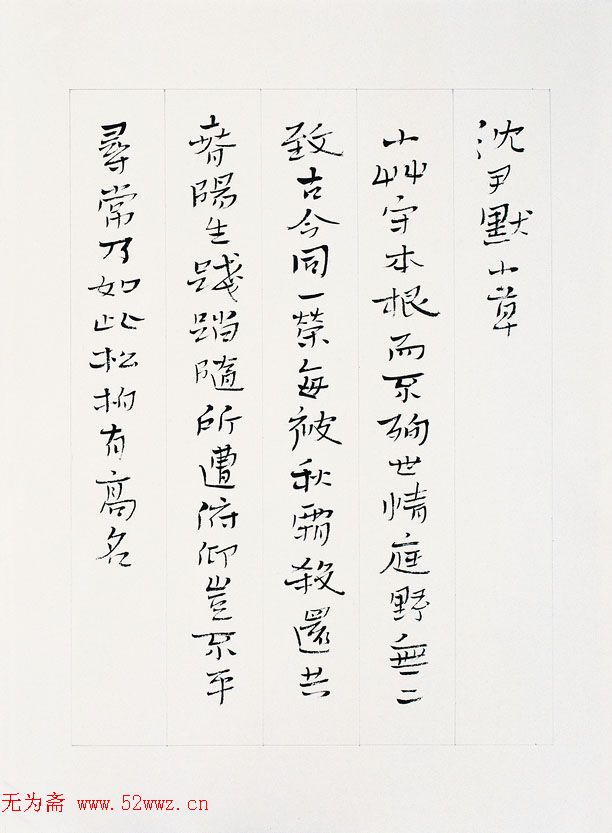 沈尹默小草
小艸守本根而不殉世情庭野無二
致古今同一榮每被秋霜殺還共
春陽生踐蹈隨所遭俯仰豈不平
尋常乃如此松柏有高名
无为斋 www.52wwz.cn